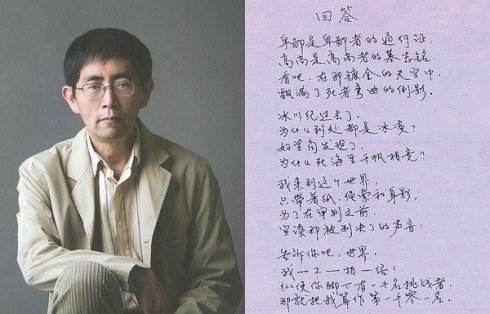 回答
卑鄙是卑鄙者的通行证,
高尚是高尚者的墓志铭。
看吧,在那镀金的天空中,
飘满了死者弯曲的倒影。
冰川纪过去了,
为什么到处都是冰凌?
好望角发现了,
为什么死海里千帆相竞?
我来到这个世界,
只带着纸、绳索和身影,
为了在审判之前,
宣读那被判决了的声音:
告诉你吧,世界,
我—不—相—信!
纵使你脚下有一千名挑战者,
那就把我算作第一千零一名。